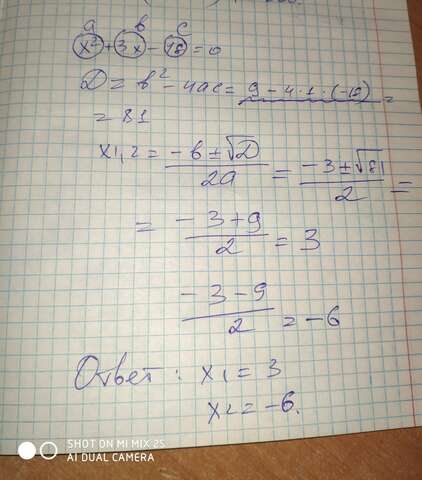 a b c
x² + 3x - 18 = 0
D = b² - 4ac = 9 - 4·1·(-18) =
= 81
x1,2 = (-b ± √D)/2a = (-3 ± √81)/2 =
= (-3+9)/2 = 3
(-3-9)/2 = -6
Ответ: x1 = 3
x2 = -6.
SHOT ON MI MIX 2S
AI DUAL CAMERA